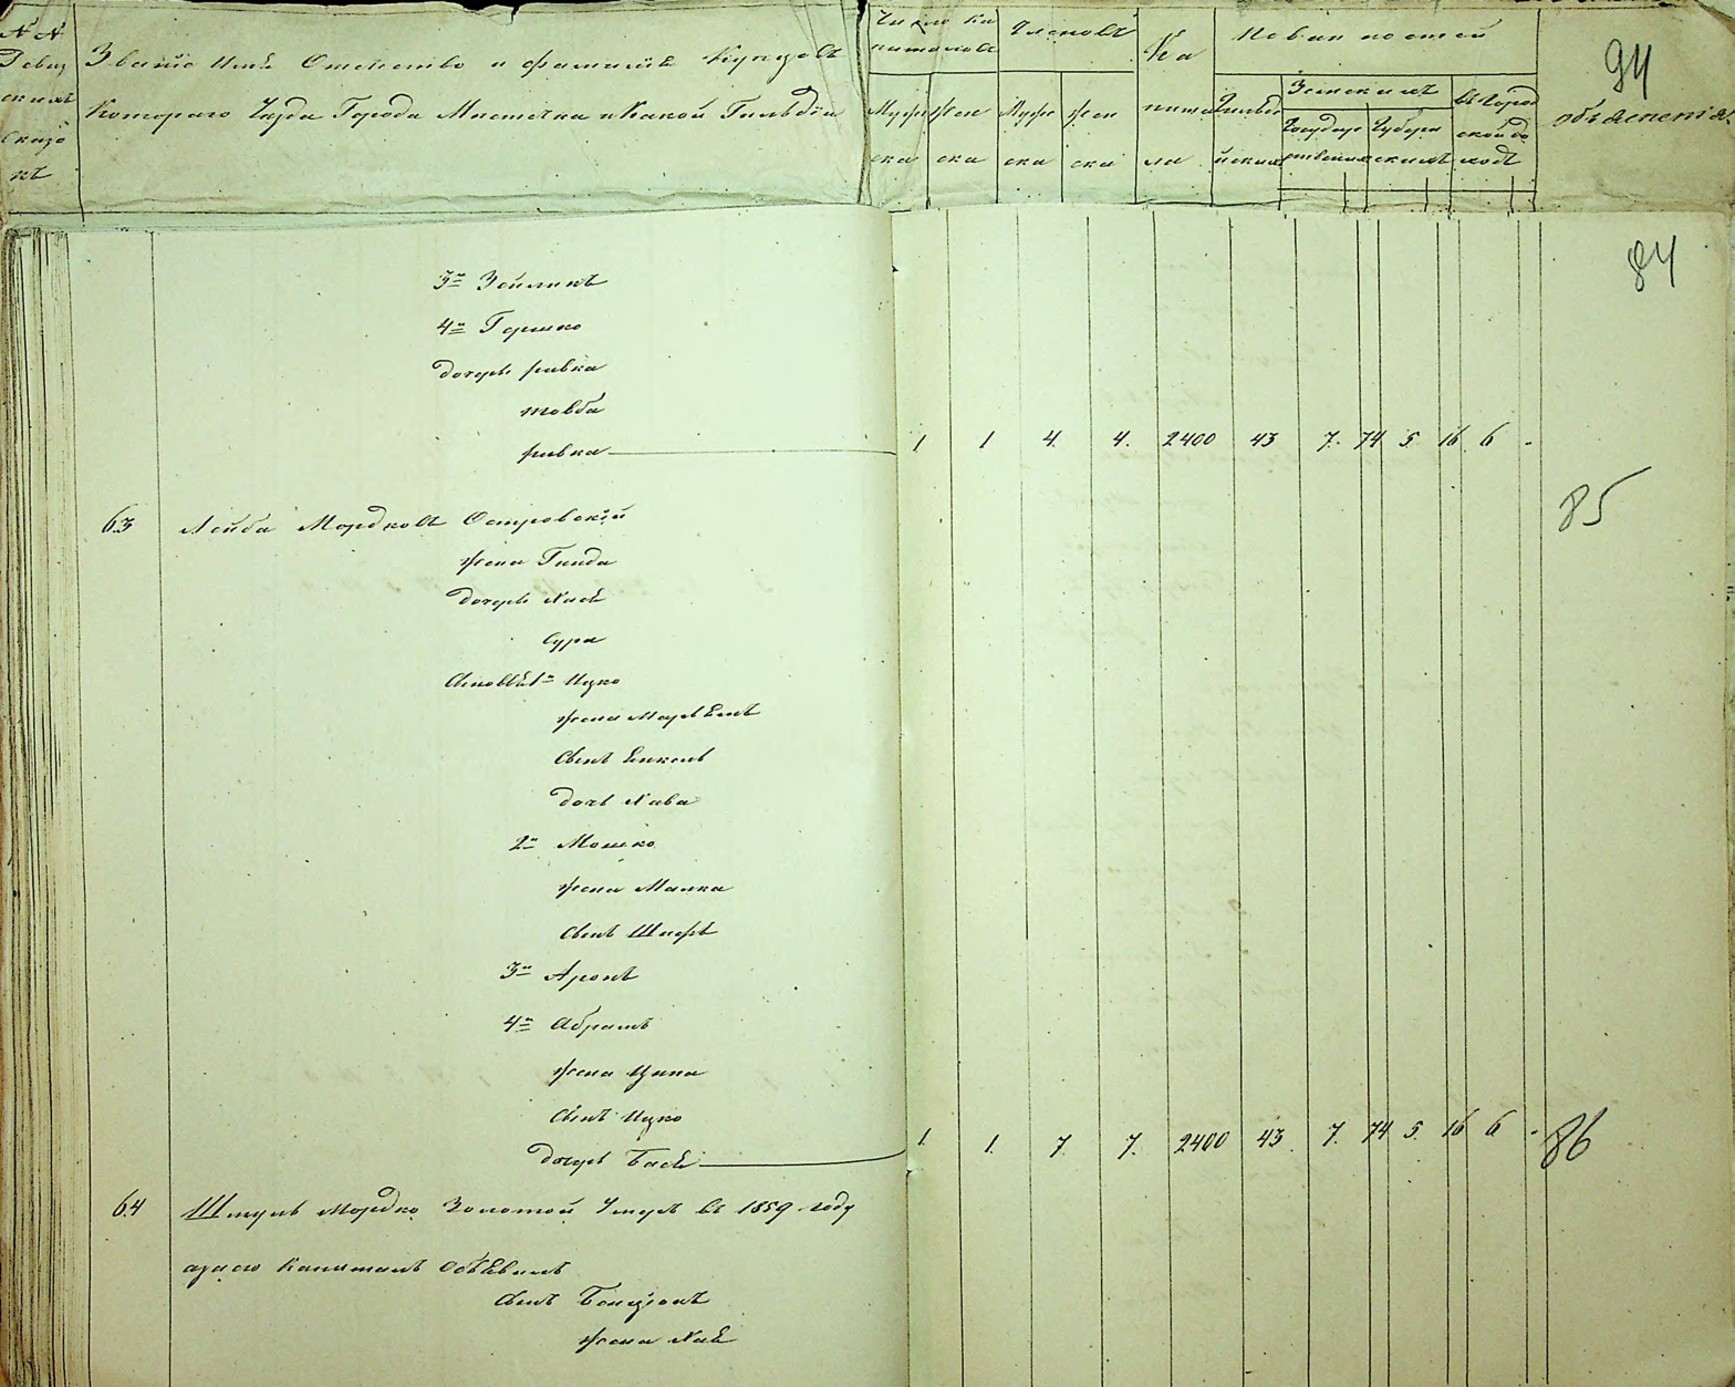 № №
Ревиз
скихъ
Сказо
къ
Званіе Имя Отчество и фамилія Купцовъ
Котораго Уезда Города Мистечка и Какой Гильдіи
Число ка
питаловъ
Мужe
ска
Жен
ска
Членовъ
Муже
ска
Жен
ска
Ка
пита
ла
Повинностей
Гильдей
Земскихъ
Государ
ственныхъ
Губерн
скихъ
въ Город
ской до
ходъ
94
объясненія
84
3й Зейликъ
4й Гершко
дочерь ривка
товба
ривка
1 1 4. 4. 2400 43 7. 74 5 16 6 -
85
63 Лейба Мордковъ Островскій
жена Гинда
дочерь Хаѣ
Сура
Сыновья 1й Ицко
жена Марьѣмъ
Сынъ Янкель
дочь Хава
2й Мошко
жена Малка
Сынъ
3й Аронъ
4й Абрамъ
жена Ципа
Сынъ Ицко
дочерь Басѣ
1. 1. 7 7. 2400 43. 7. 74 5. 16 6 -
86
64 Шмуль Мордко Золотой Умеръ въ 1859 году
Капиталъ Объѣвилъ
Сынъ Бенционъ
жена Хаѣ